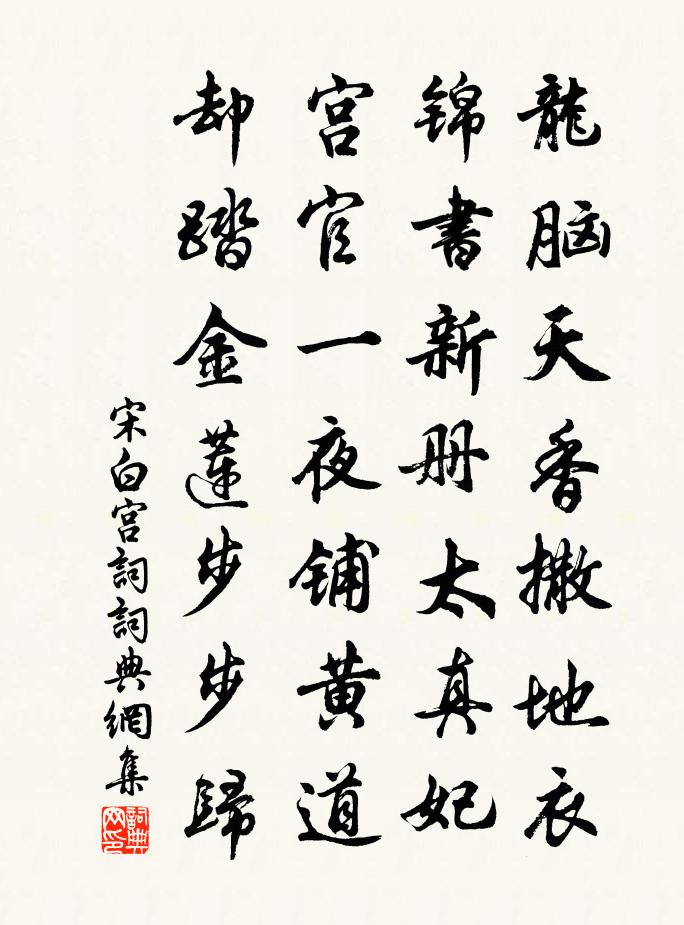 龍脑天香撒地衣
锦書新册太真妃
宫官一夜铺黄道
却踏金蓮步步歸
宋白宫詞詞典網集
詞典網印